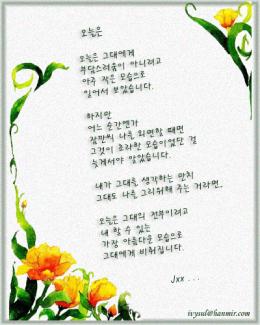 오늘은
오늘은 그대에게
부담스러움이 아니려고
아주 작은 모습으로
밀어서 보았습니다.
하지만
어느 순간엔가
잠깐씩 나를 외면할 때면
그것이 초라한 모습이었단 걸
늦게서야 알았습니다.
내가 그대를 생각하는 만치
그대도 나를 그리워해 주는 거라면,
오늘은 그대의 전부이려고
내 할 수 있는
가장 아름다운 모습으로
그대에게 비춰집니다.
Jxx ...
ivysul@hanmir.com